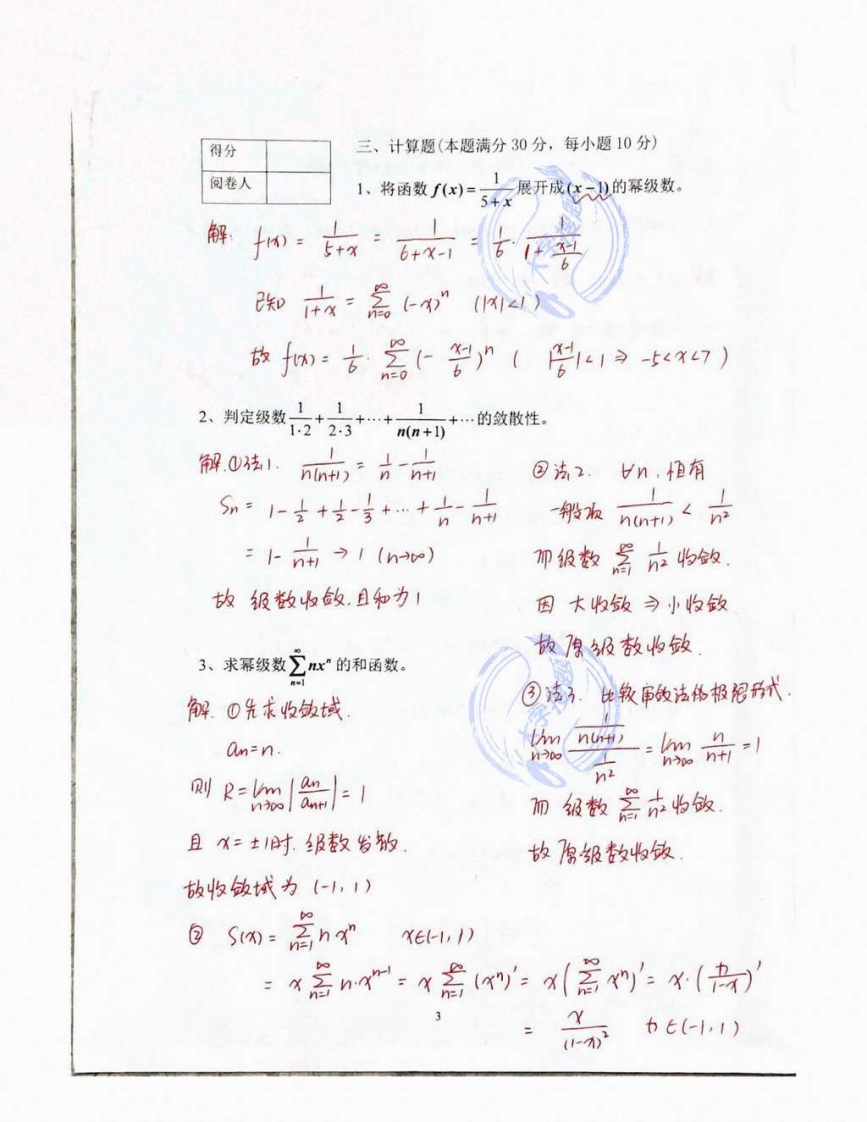 得分
阅卷人
三、计算题(本题满分 30 分，每小题 10 分)
1、将函数 f(x) = 1/(5+x) 展开成(x－1)的幂级数。
解: f(x) = 1/(5+x) = 1/(6+x-1) = 1/6 · 1/(1+(x-1)/6)
已知 1/(1+x) = ∑_{n=0}^{∞} (-x)^n (|x|<1)
故 f(x) = 1/6 · ∑_{n=0}^{∞} (- (x-1)/6)^n ( |(x-1)/6|<1 ⇒ -5<x<7 )
2、判定级数 1/(1·2) + 1/(2·3) + ··· + 1/(n(n+1)) + ··· 的敛散性。
解.①法1. 1/(n(n+1)) = 1/n - 1/(n+1)
Sn = 1 - 1/2 + 1/2 - 1/3 + ... + 1/n - 1/(n+1)
= 1 - 1/(n+1) → 1 (n→∞)
故 级数收敛.且和为1
②法2. ∀n,恒有
一般项 1/(n(n+1)) < 1/n²
而级数 ∑_{n=1}^{∞} 1/n² 收敛.
因 大收敛 ⇒ 小收敛
故 原级数收敛.
③法3. 比较审敛法的极限形式.
lim_{n→∞} (1/(n(n+1)))/(1/n²) = lim_{n→∞} n/(n+1) = 1
而 级数 ∑_{n=1}^{∞} 1/n² 收敛.
故 原级数收敛.
3、求幂级数 ∑_{n=1}^{∞} nx^n 的和函数。
解. ①先求收敛域.
an=n.
则 R = lim_{n→∞} |an/an+1| = 1
且 x=±1时.级数发散.
故收敛域为 (-1,1)
② S(x) = ∑_{n=1}^{∞} n x^n x∈(-1,1)
= x ∑_{n=1}^{∞} n·x^{n-1} = x ∑_{n=1}^{∞} (x^n)' = x(∑_{n=1}^{∞} x^n)' = x·(x/(1-x))'
= x/(1-x)² x∈(-1,1)
3